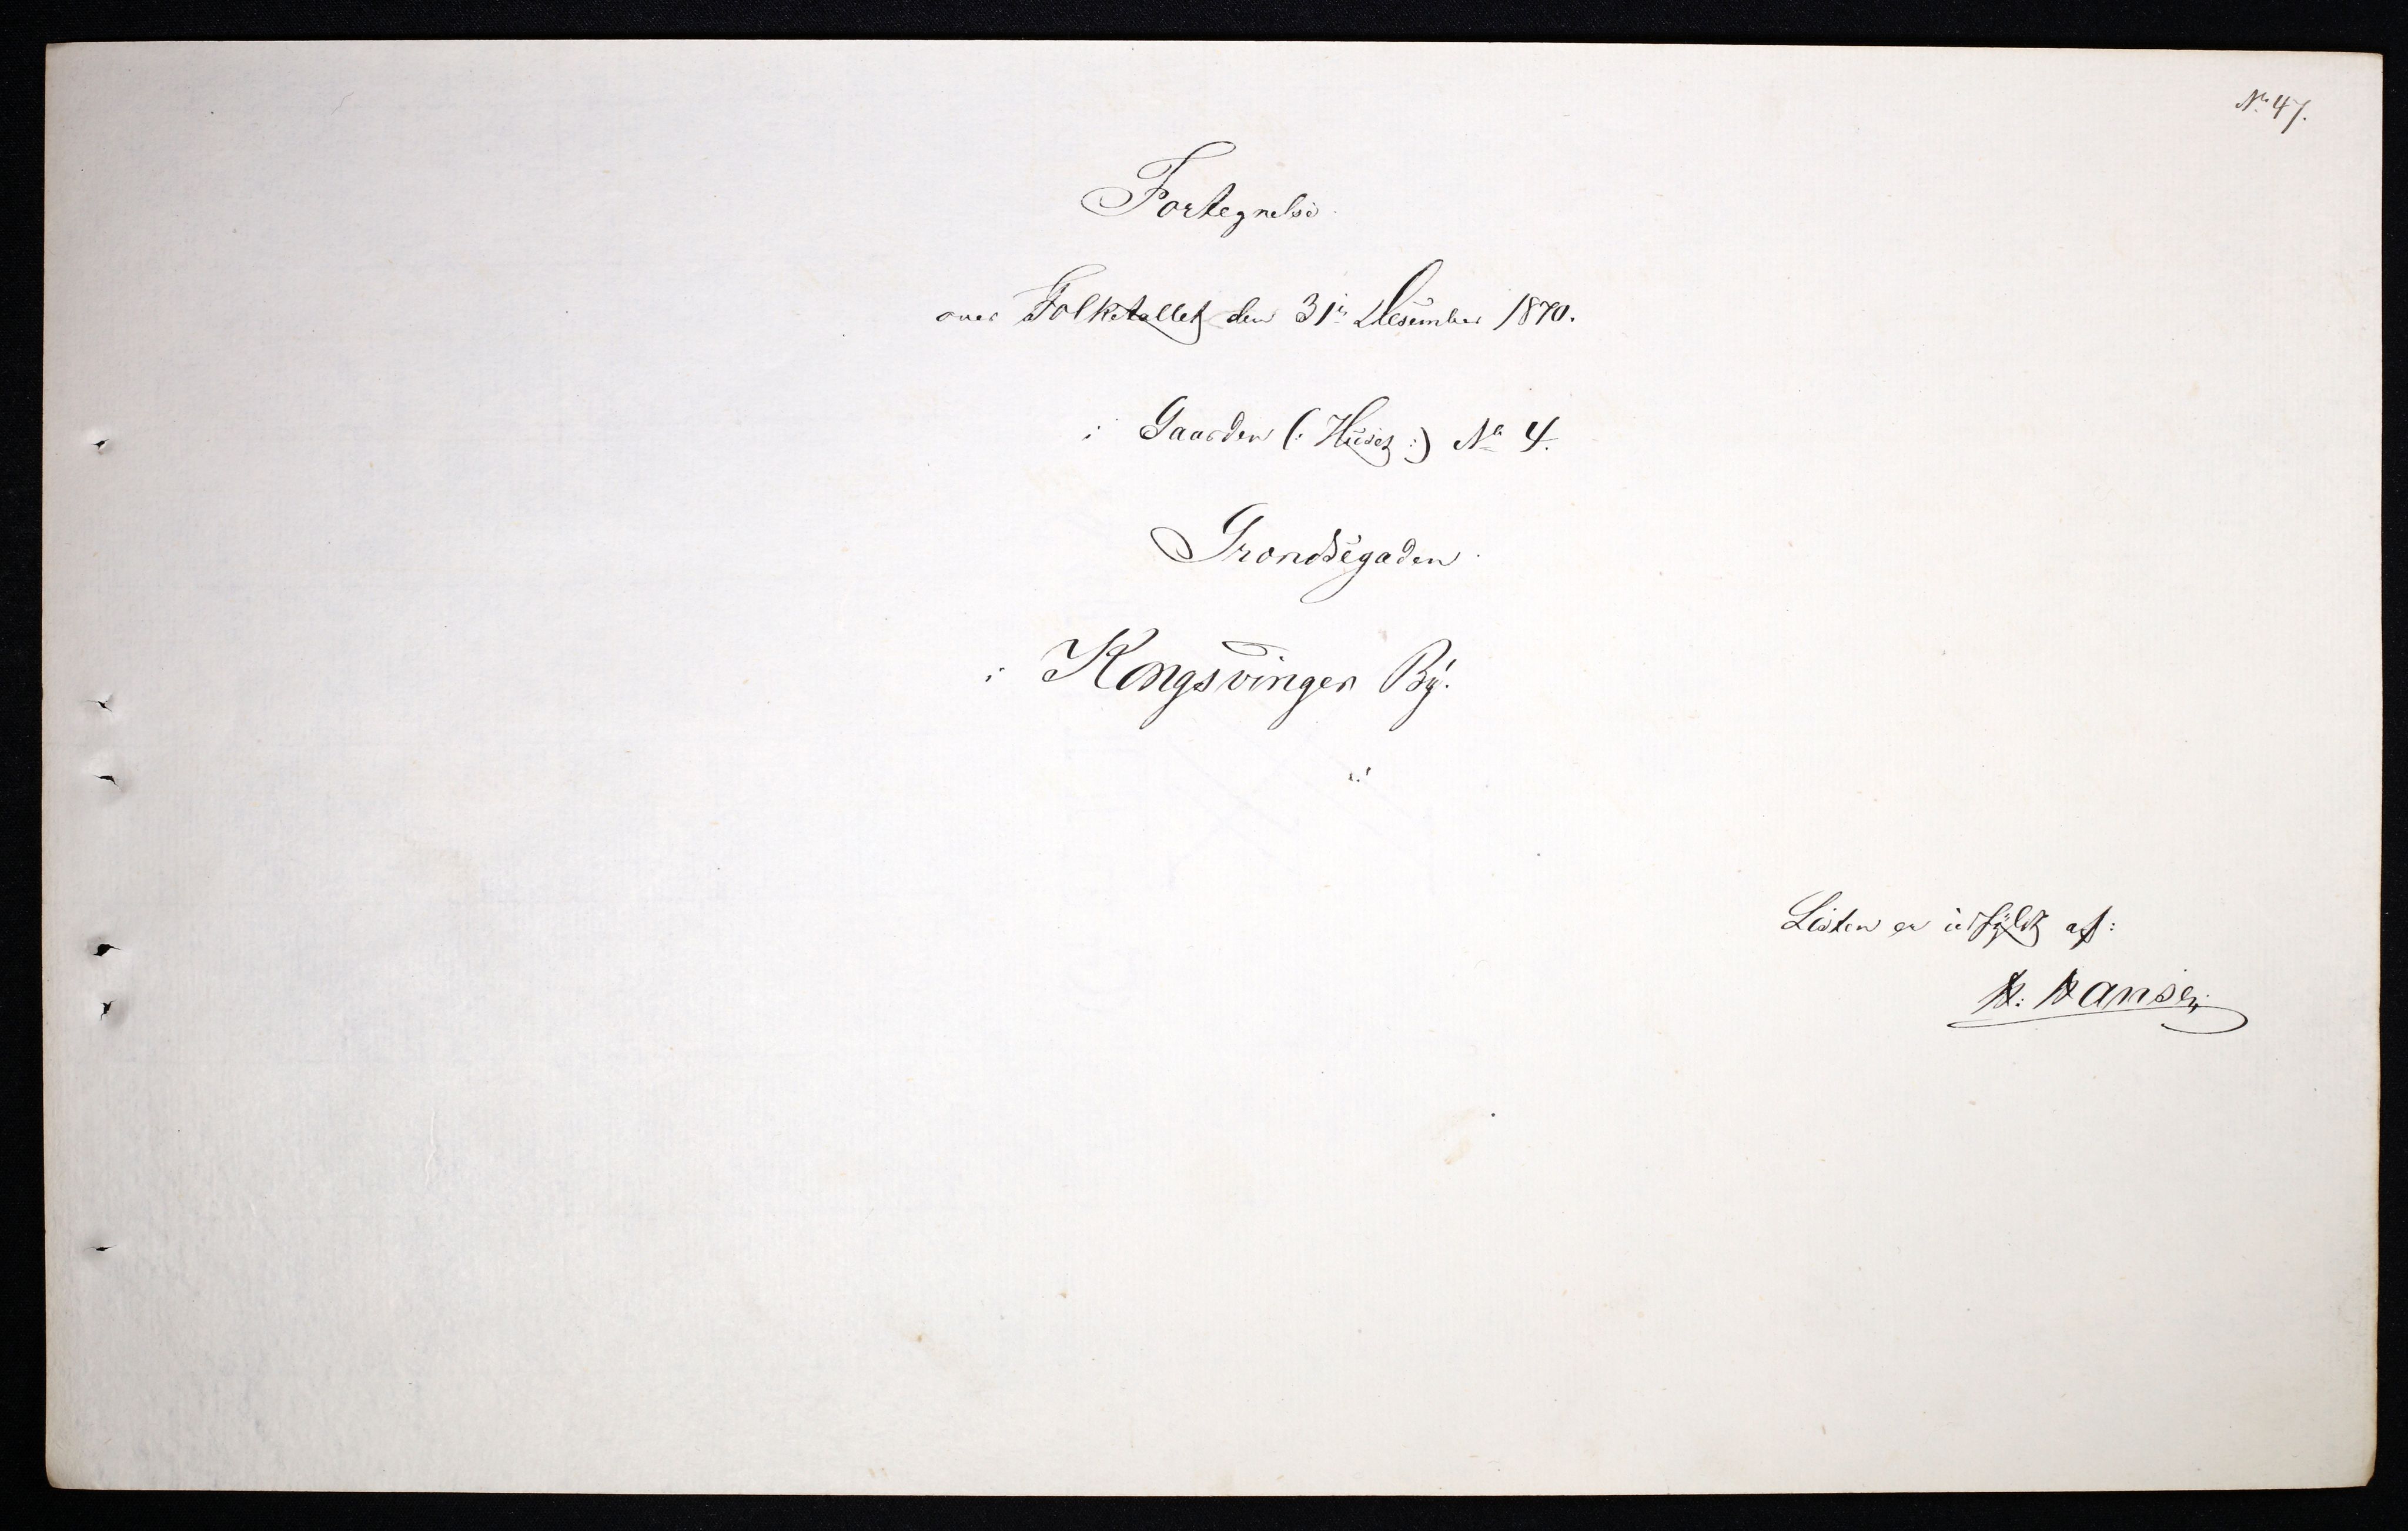 No 47.
Fortegnelse
over Folketallet den 31te Desember 1870.
i Gaarden (: Huset :) No 4.
i Kongsvinger By.
Listen er udfyldt af:
H. Hansen